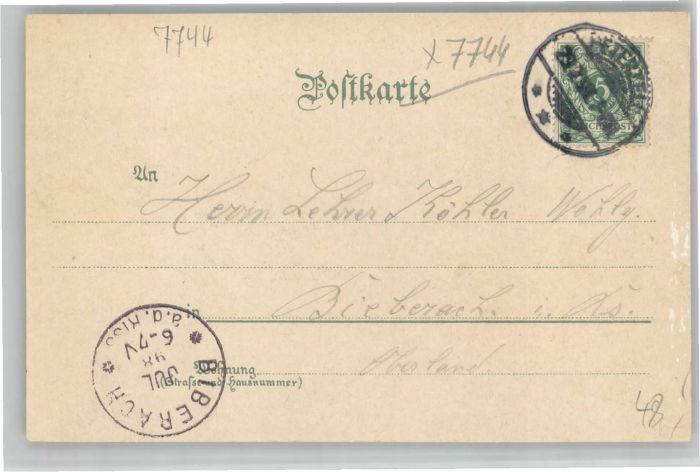 7744
x 7744
Postkarte
5
An
Herrn Lehrer Köhler Wohlg.
in Bieberach. i. Ks.
Oberland.
Wohnung
(Strasse und Hausnummer)
BIBERACH
a.d. Riss
6-7 V
98
JUL
48